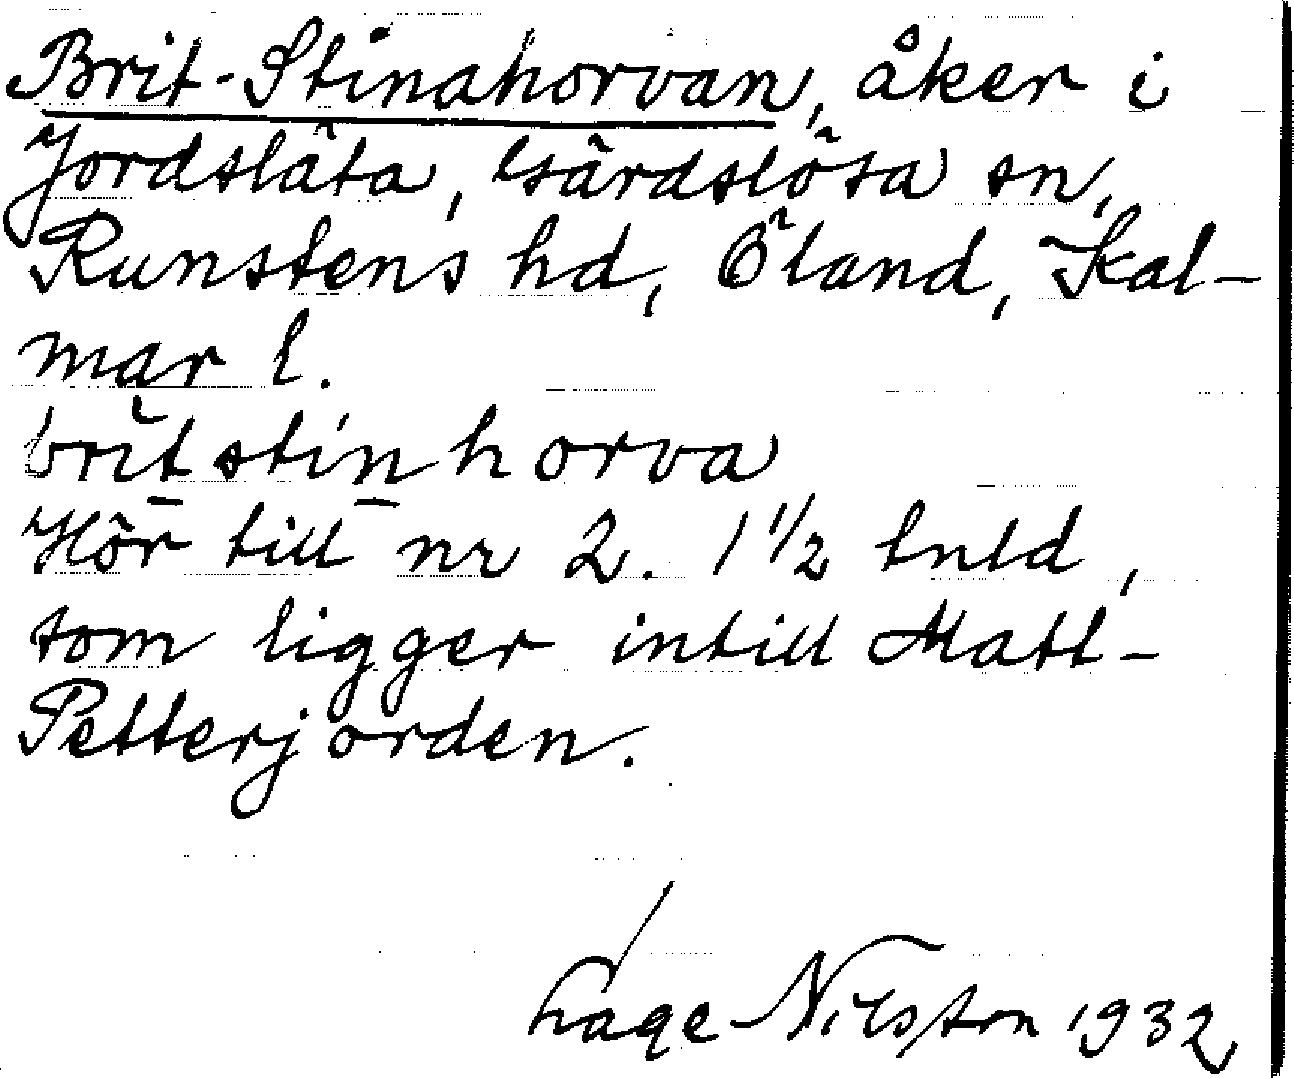 Brit-Stinahorvan, åker i
Jordsläta, Gärdslösa sn,
Runstens hd, Öland, Kal-
mar l.
britstinhorva
Hör till nr 2. 1 1/2 tnld,
som ligger intill Matt-
Petterjorden.
Lage Nilsson 1932